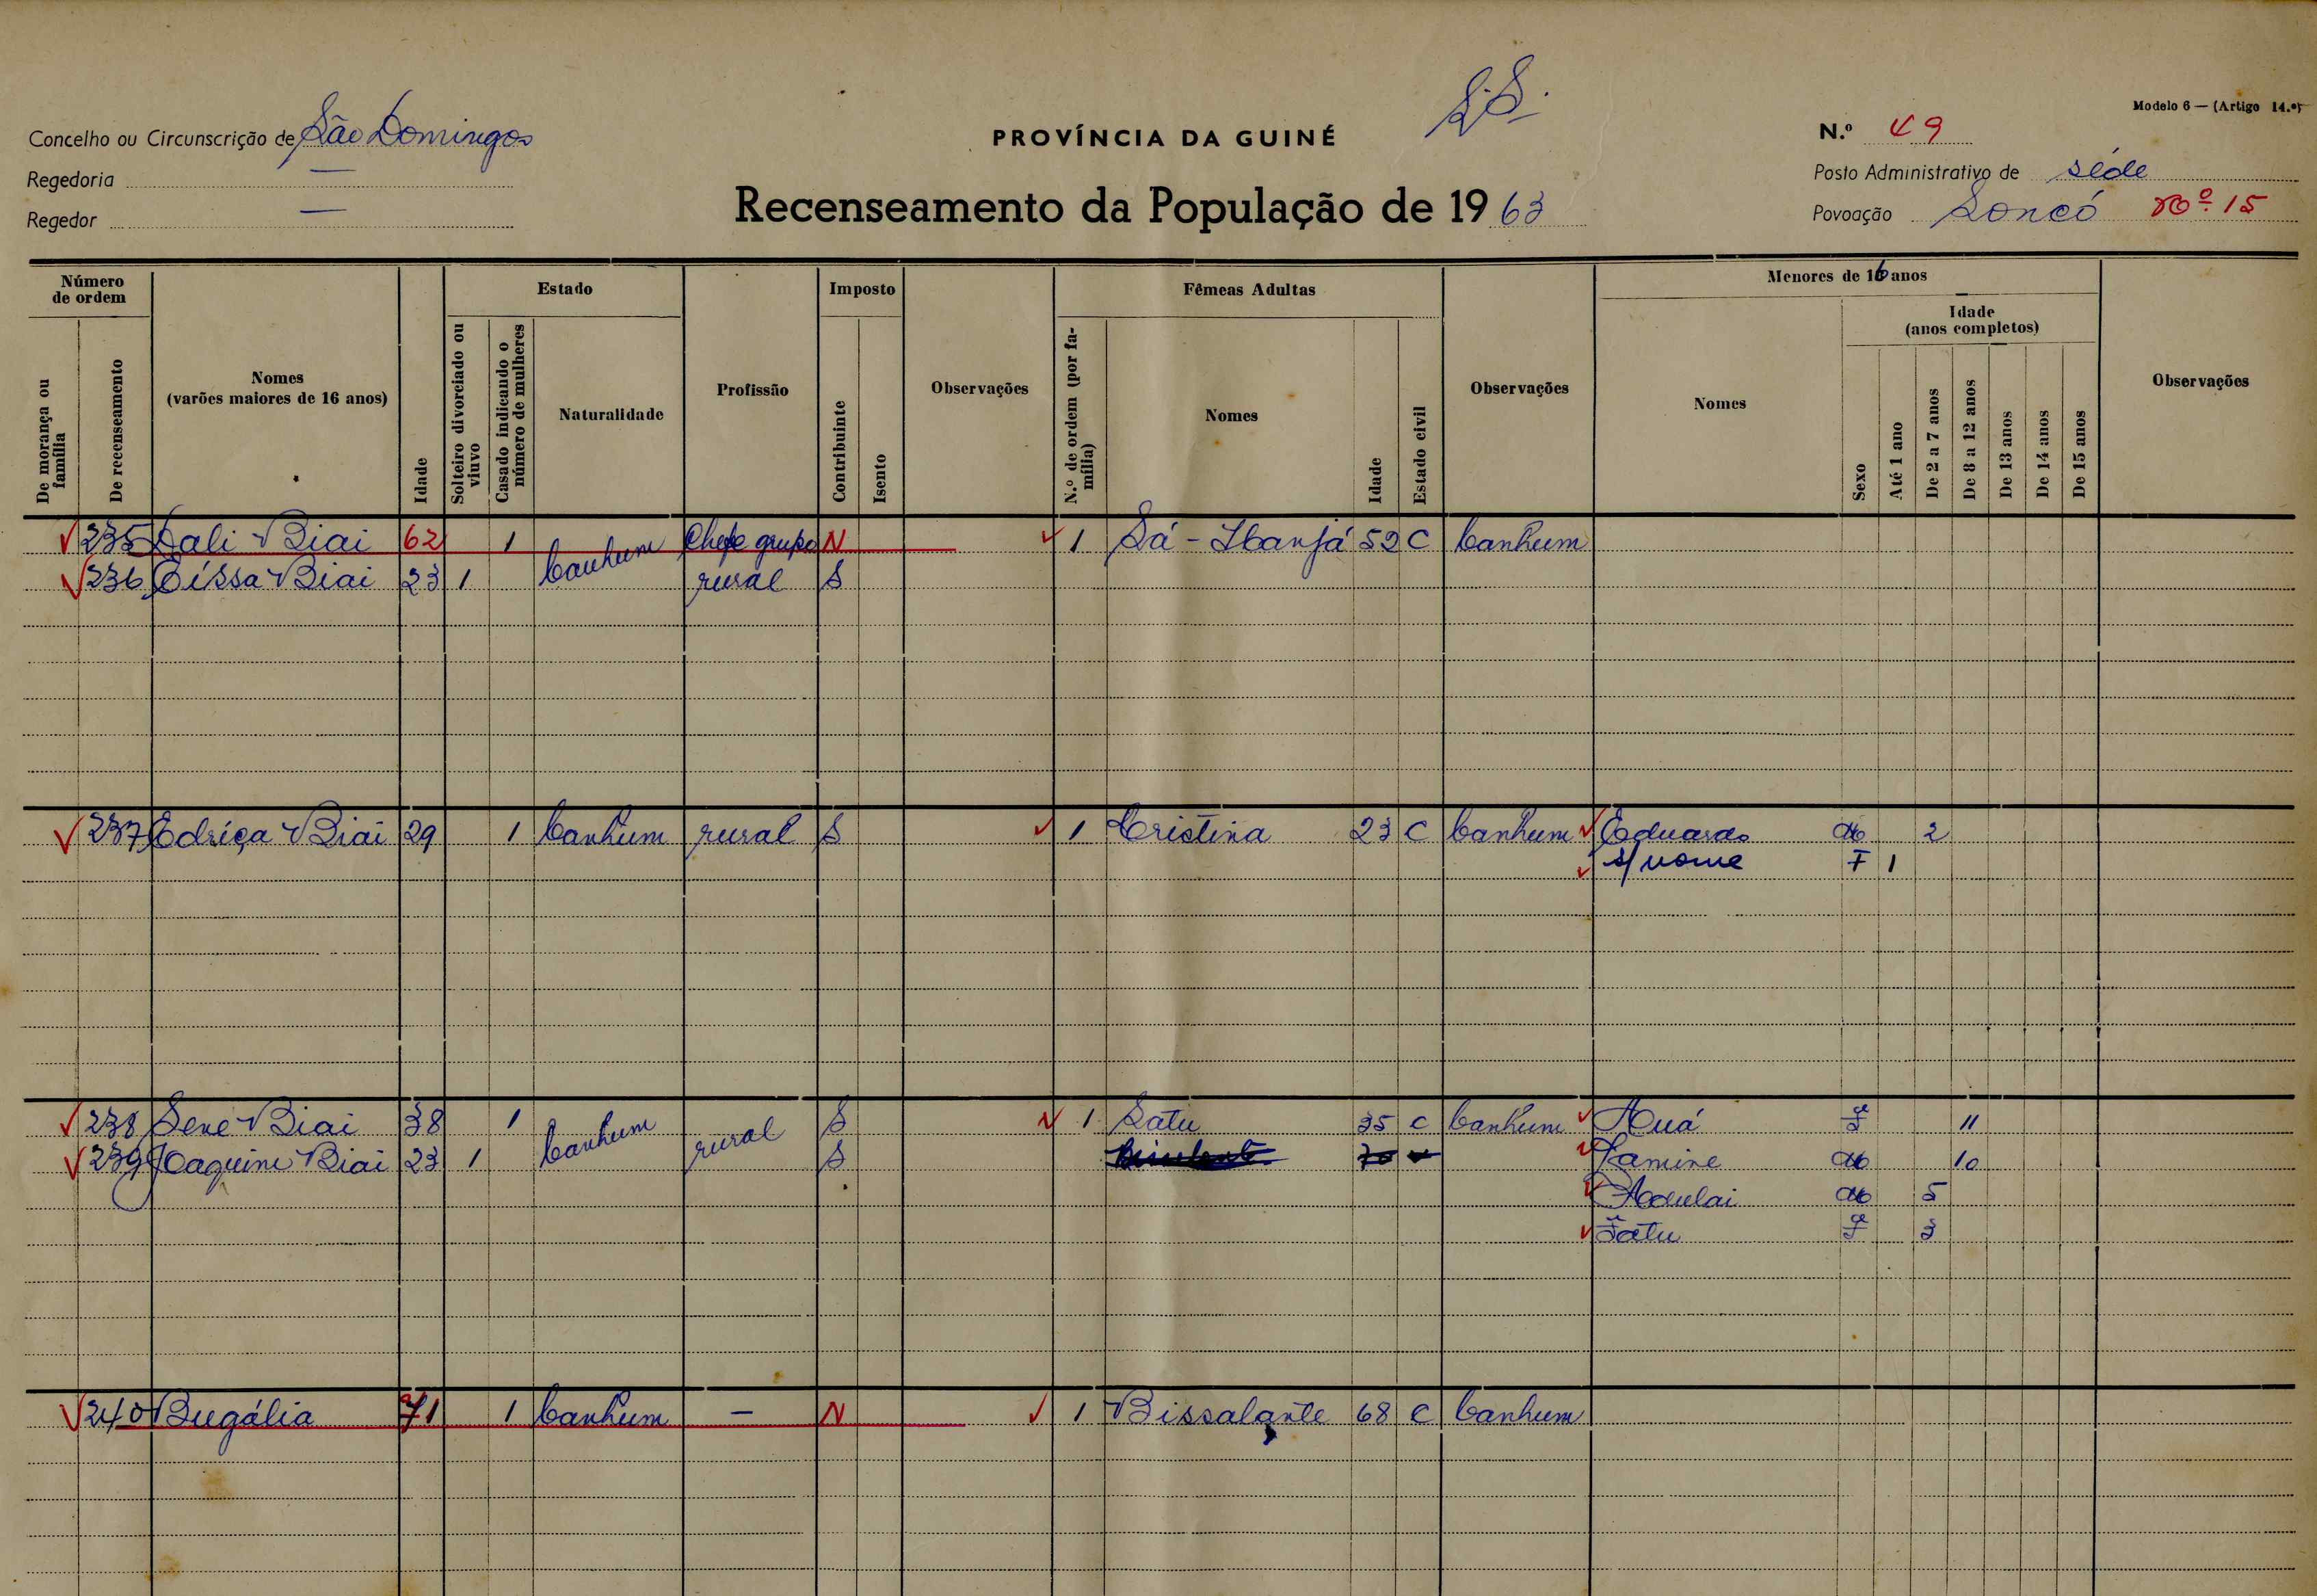 S.S.
Modelo 6 — (Artigo 14.º)
Concelho ou Circunscrição de São Domingos
PROVÍNCIA DA GUINÉ
N.º 49
Regedoria —
Posto Administrativo de séde
Regedor —
Recenseamento da População de 1963
Povoação Soncó Nº 15
Número de ordem
De morança ou família
De recenseamento
Nomes (varões maiores de 16 anos)
Idade
Estado
Solteiro divorciado ou viuvo
Casado indicando o número de mulheres
Naturalidade
Profissão
Imposto
Contribuinte
Isento
Observações
Fêmeas Adultas
N.º de ordem (por família)
Nomes
Idade
Estado civil
Observações
Menores de 16 anos
Nomes
Sexo
Idade (anos completos)
Até 1 ano
De 2 a 7 anos
De 8 a 12 anos
De 13 anos
De 14 anos
De 15 anos
Observações
235 Dali Biai 62 1 Canhum Chefe grupo N 1 Sá - Ibanjá 52 C Canhum
236 Eissa Biai 23 1 rural S
237 Edriça Biai 29 1 Canhum rural S 1 Cristina 23 C Canhum Eduardo M 2
s/ nome F 1
238 Sene Biai 38 1 Canhum rural S 1 Satu 35 C Canhum Auá F 11
239 Joaquim Biai 23 1 S 70 Lamine M 10
Adulai M 5
Fatu F 3
240 Bugália 71 1 Canhum — N 1 Bissalante 68 C Canhum